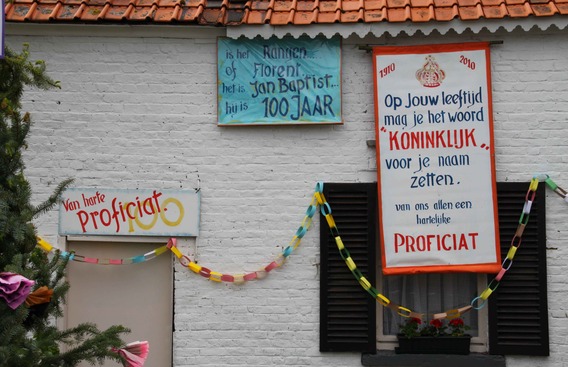 is het Rangen...
of Florent...
het is Jan Baptist...
hij is 100 JAAR
1910 2010
Op jouw leeftijd
mag je het woord
"KONINKLIJK"
voor je naam
zetten.
van ons allen een
hartelijke
PROFICIAT
Van harte
Proficiat 100